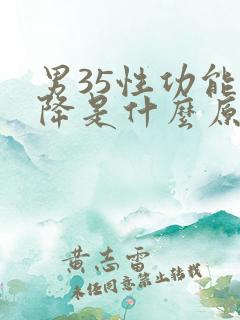 男35性功能
降是什麽原
黄志雷
未经同意禁止转载